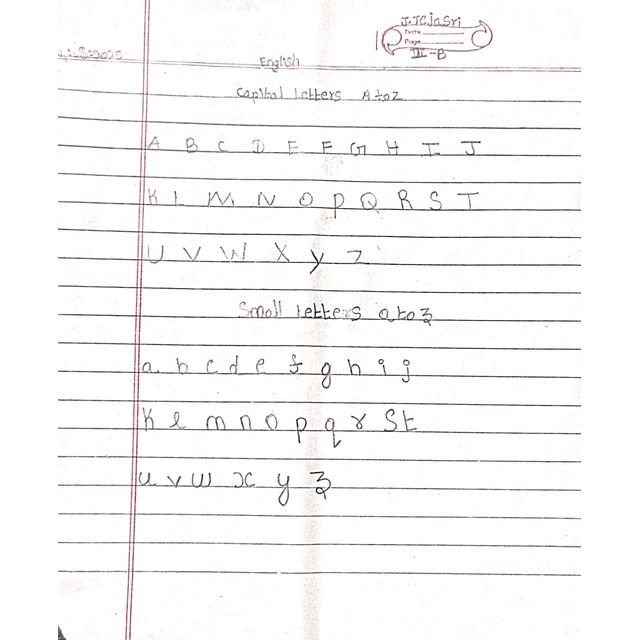 J.Tejasri
Date
Page
III-B
English
Capital letters A to Z
A B C D E F G H I J
K L M N O P Q R S T
U V W X y Z
Small letters a to z
a b c d e f g h i j
k l m n o p q r s t
u v w x y z